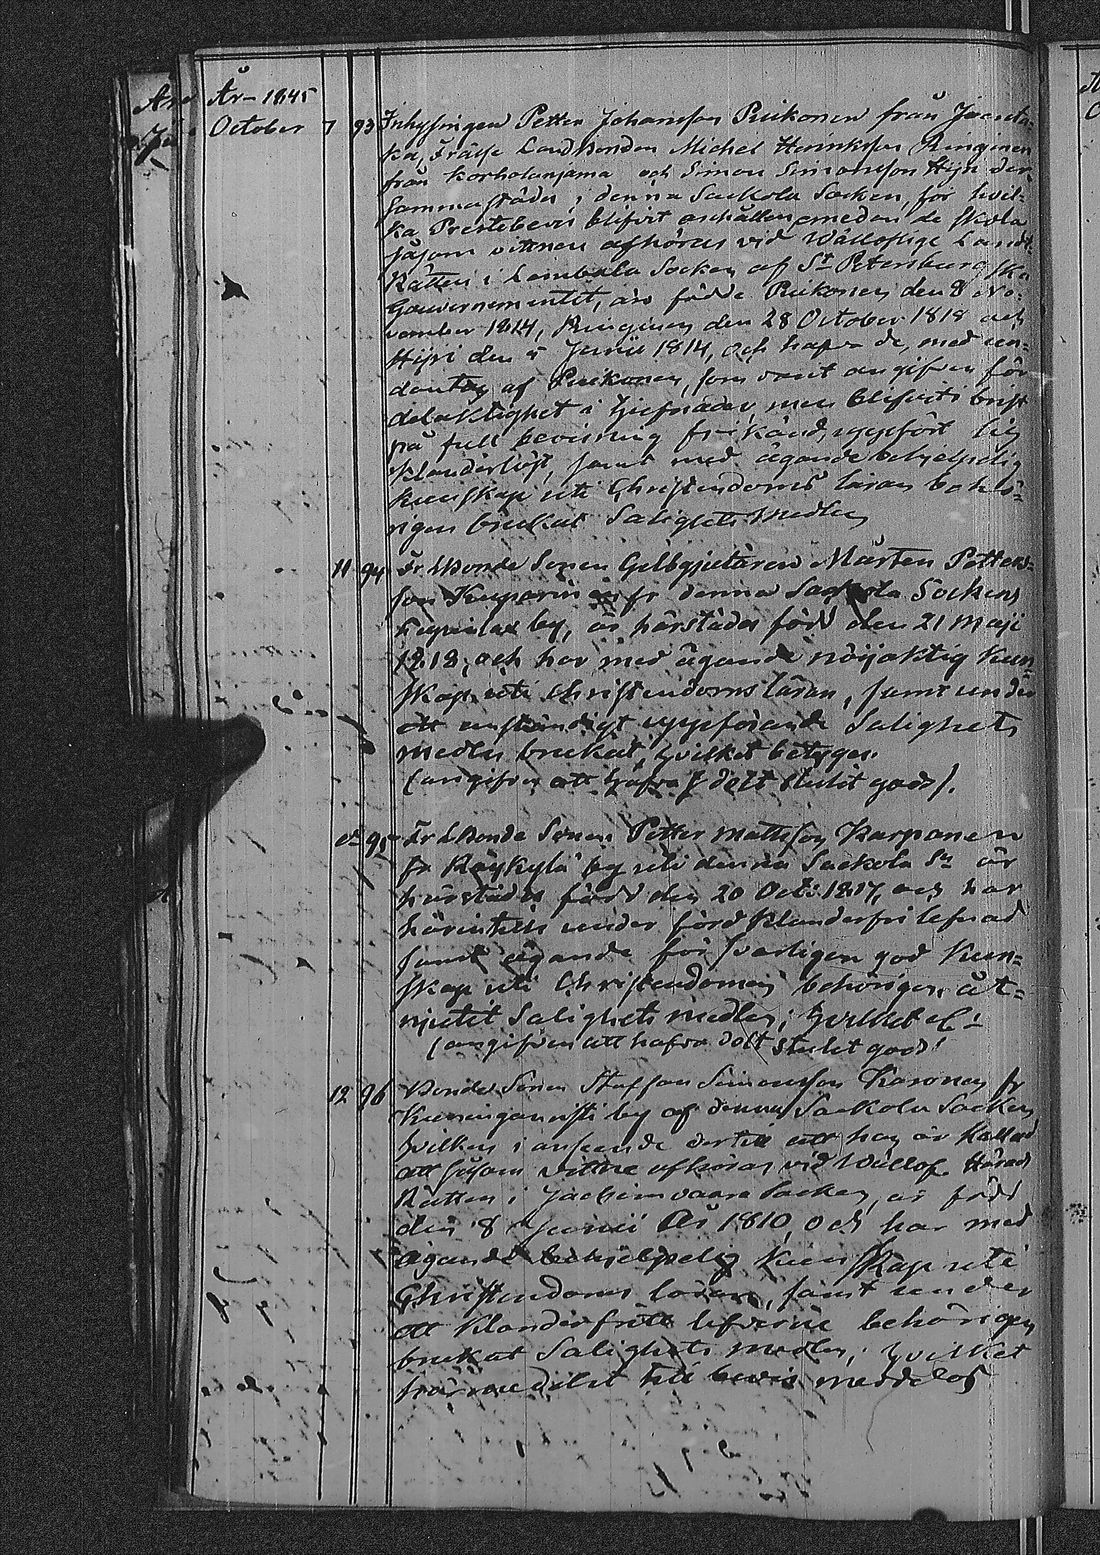 År 1845
October 7 93 Inhysingen Petter Johansson Puikonen från
ka, Frälse Landbonden Michel Henriksson Ringinen
från Korholanjama och Simon Simonsson Hyri der
sammastädes i denna Sackola Socken, för hvil=
ka Prestebevis blifvit anhållen, medan de skola
såsom vittnen afhöras vid Wällofliga Landt
Rätten i Lembala Socken af St Petersburgska
Gouvernementet, äro födde Puikonen den 8 No=
vember 1814, Ringinen den 28 October 1818 och
Hyri den 5 Junii 1814, och hafva de, med un=
dantag af Puikonen, som varit angifven för
delaktighet i tjufnader, men blifvit i brist
på full bevisning frikänd, uppfört sig
klanderlöst, samt med ägande behjelpelig
kunskap uti Christendoms läran behö=
rigen brukat Salighets Medlen
11 94 Fr. Bonde Sonen Gelbgjutaren Mårten Petters=
son Kuparinen fr denna Sackola Sockens
by, är härstädes född den 21 Maji
1818, och har med ägande nöijaktig kun=
skap uti Christendoms läran, samt under
ett anständigt uppförande Salighets
medlen brukat, hvilket betygas.
(angifven att hafva dolt stulit gods).
d:o 95 Fr. Bonde Sonen Petter Mattsson Karpanen
fr Räykylä by uti denna Sackola Sn är
härstädes född den 20 Oct: 1817, och har
härintills under förd klanderfri lefnad
samt ägande försvarligen god kun=
skap uti Christendomen behörigen åt=
njutit Salighets medlen; hvilket &c:
(angifven att hafva dolt stulit gods!
12 96 Bonde Sonen Staffan Simonsson Karonen fr
by af denna Sackola Socken
hvilken i anseende dertill att han är kallad
att såsom vittne afhöras vid Wällof. Härads
Rätten i Jachimvaara Socken, är född
den 8 Junii År 1810, och har med
ägande behjelpelig kunskap uti
Christendoms läran, samt under
ett klanderfritt lefverne behörigen
brukat Salighets medlen; hvilket
härmedelst till bevis meddelas